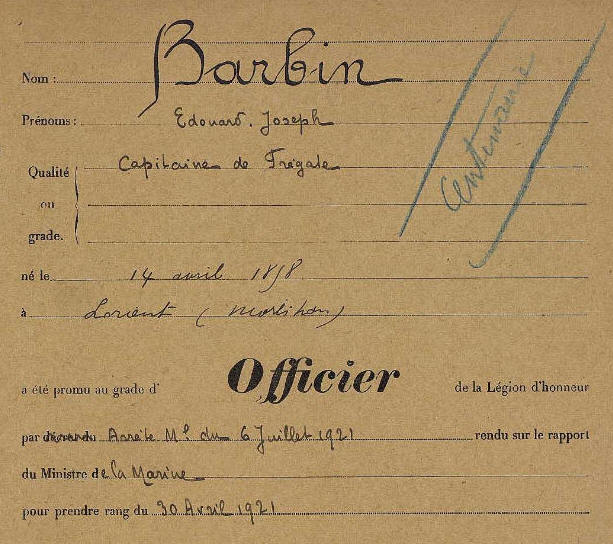 Nom : Barbin
Prénoms : Edouard. Joseph
Centenaire
Qualité Capitaine de Frégate
ou
grade.
né le 14 avril 1858
à Lorient (Morbihan)
a été promu au grade d' Officier de la Légion d'honneur
par décret du Arrête Mel du 6 Juillet 1921 rendu sur le rapport
du Ministre de la Marine
pour prendre rang du 30 Avril 1921